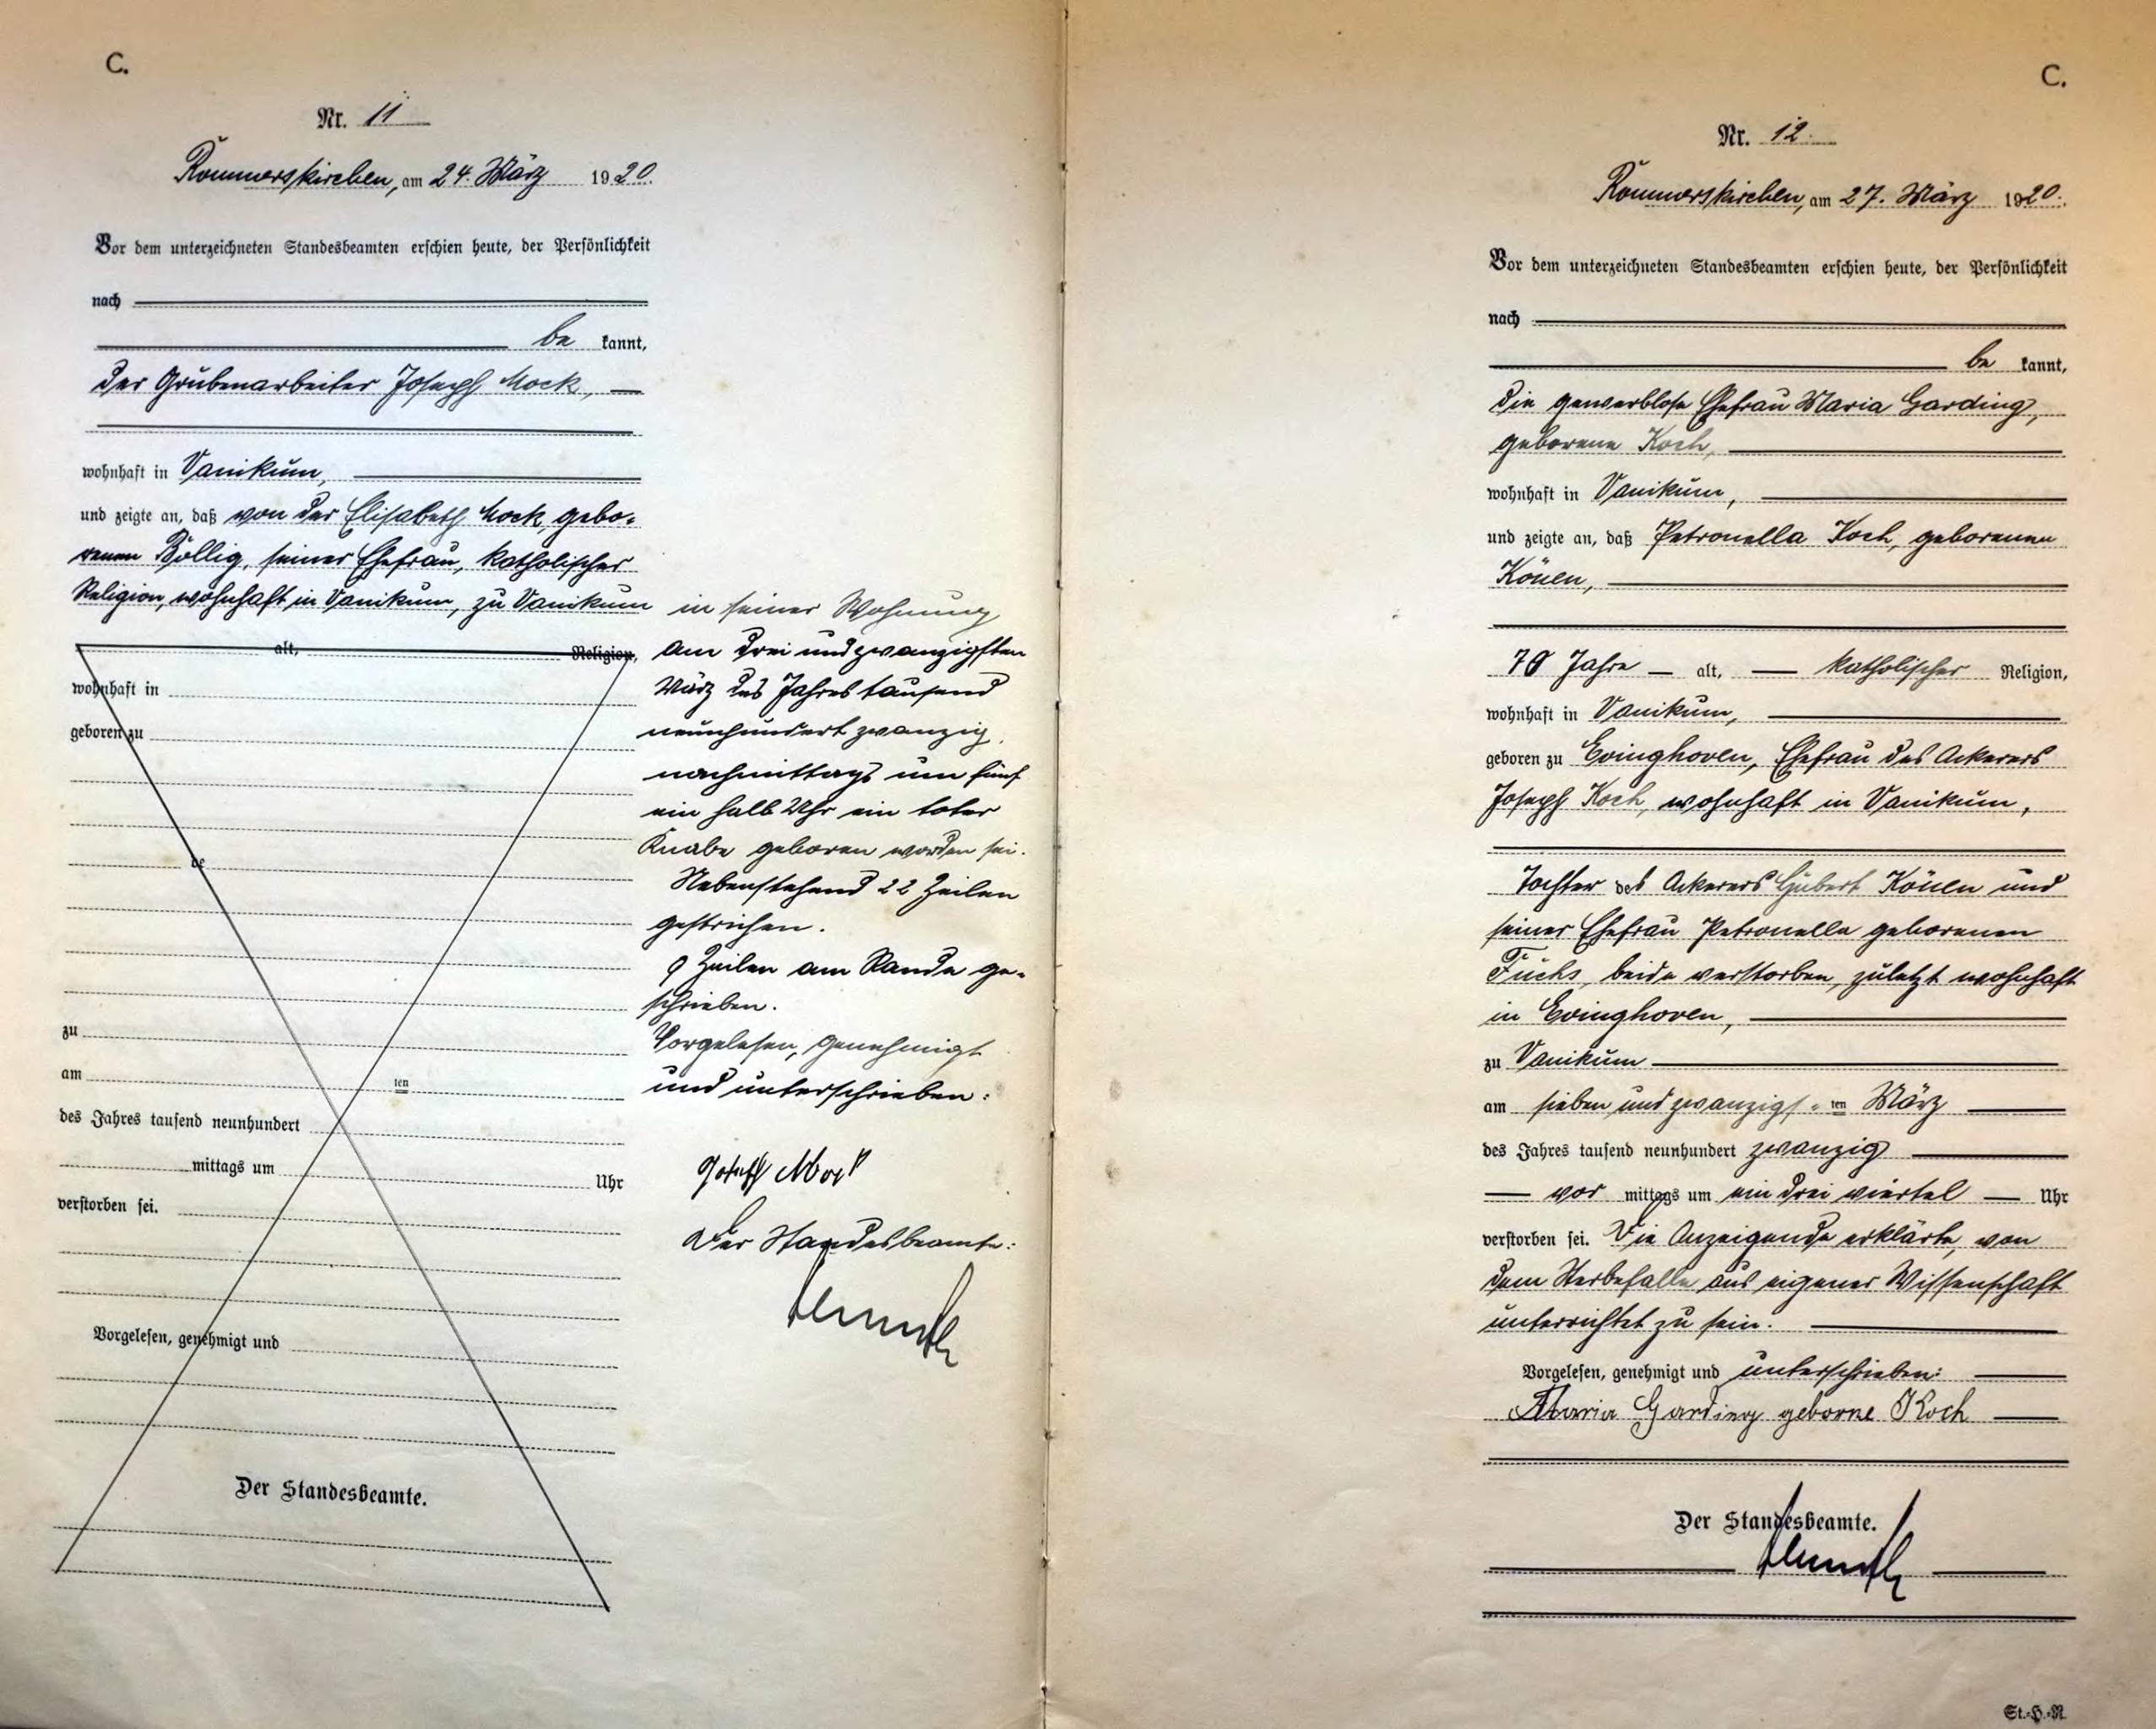 C.
Nr. 11
Rommerskirchen, am 24. März 1920.
Vor dem unterzeichneten Standesbeamten erschien heute, der Persönlichkeit
nach
be kannt,
der Grubenarbeiter Joseph Mock,
wohnhaft in Vanikum,
und zeigte an, daß von der Elisabeth Mock, gebo-
renen Böllig, seiner Ehefrau, katholischer
Religion, wohnhaft in Vanikum, zu Vanikum in seiner Wohnung
alt, Religion, am drei und zwanzigsten
wohnhaft in März des Jahres tausend
geboren zu neunhundert zwanzig,
nachmittags um fünf
ein halb Uhr ein toter
Knabe geboren worden sei.
de
Nebenstehend 22 Zeilen
gestrichen.
9 Zeilen am Rande ge-
schrieben.
zu Vorgelesen, genehmigt
am ten und unterschrieben:
des Jahres tausend neunhundert
mittags um Uhr Joseph Mock
verstorben sei.
Der Standesbeamte:
Vorgelesen, genehmigt und
Der Standesbeamte.
C.
Nr. 12.
Rommerskirchen, am 27. März 1920.
Vor dem unterzeichneten Standesbeamten erschien heute, der Persönlichkeit
nach
be kannt,
die gewerblose Ehefrau Maria Garding,
geborene Koch,
wohnhaft in Vanikum,
und zeigte an, daß Petronella Koch, geborenen
Könen,
70 Jahre alt, katholischer Religion,
wohnhaft in Vanikum,
geboren zu Evinghoven, Ehefrau des Ackerers
Joseph Koch, wohnhaft in Vanikum,
Tochter des Ackerers Hubert Könen und
seiner Ehefrau Petronella geborenen
Fuchs, beide verstorben, zuletzt wohnhaft
in Evinghoven,
zu Vanikum
am sieben und zwanzigs-ten März
des Jahres tausend neunhundert zwanzig
vor mittags um ein drei viertel Uhr
verstorben sei. Die Anzeigende erklärte, von
dem Sterbefalle aus eigener Wissenschaft
unterrichtet zu sein.
Vorgelesen, genehmigt und unterschrieben:
Maria Garding geborne Koch
Der Standesbeamte.
St.-H.-N.